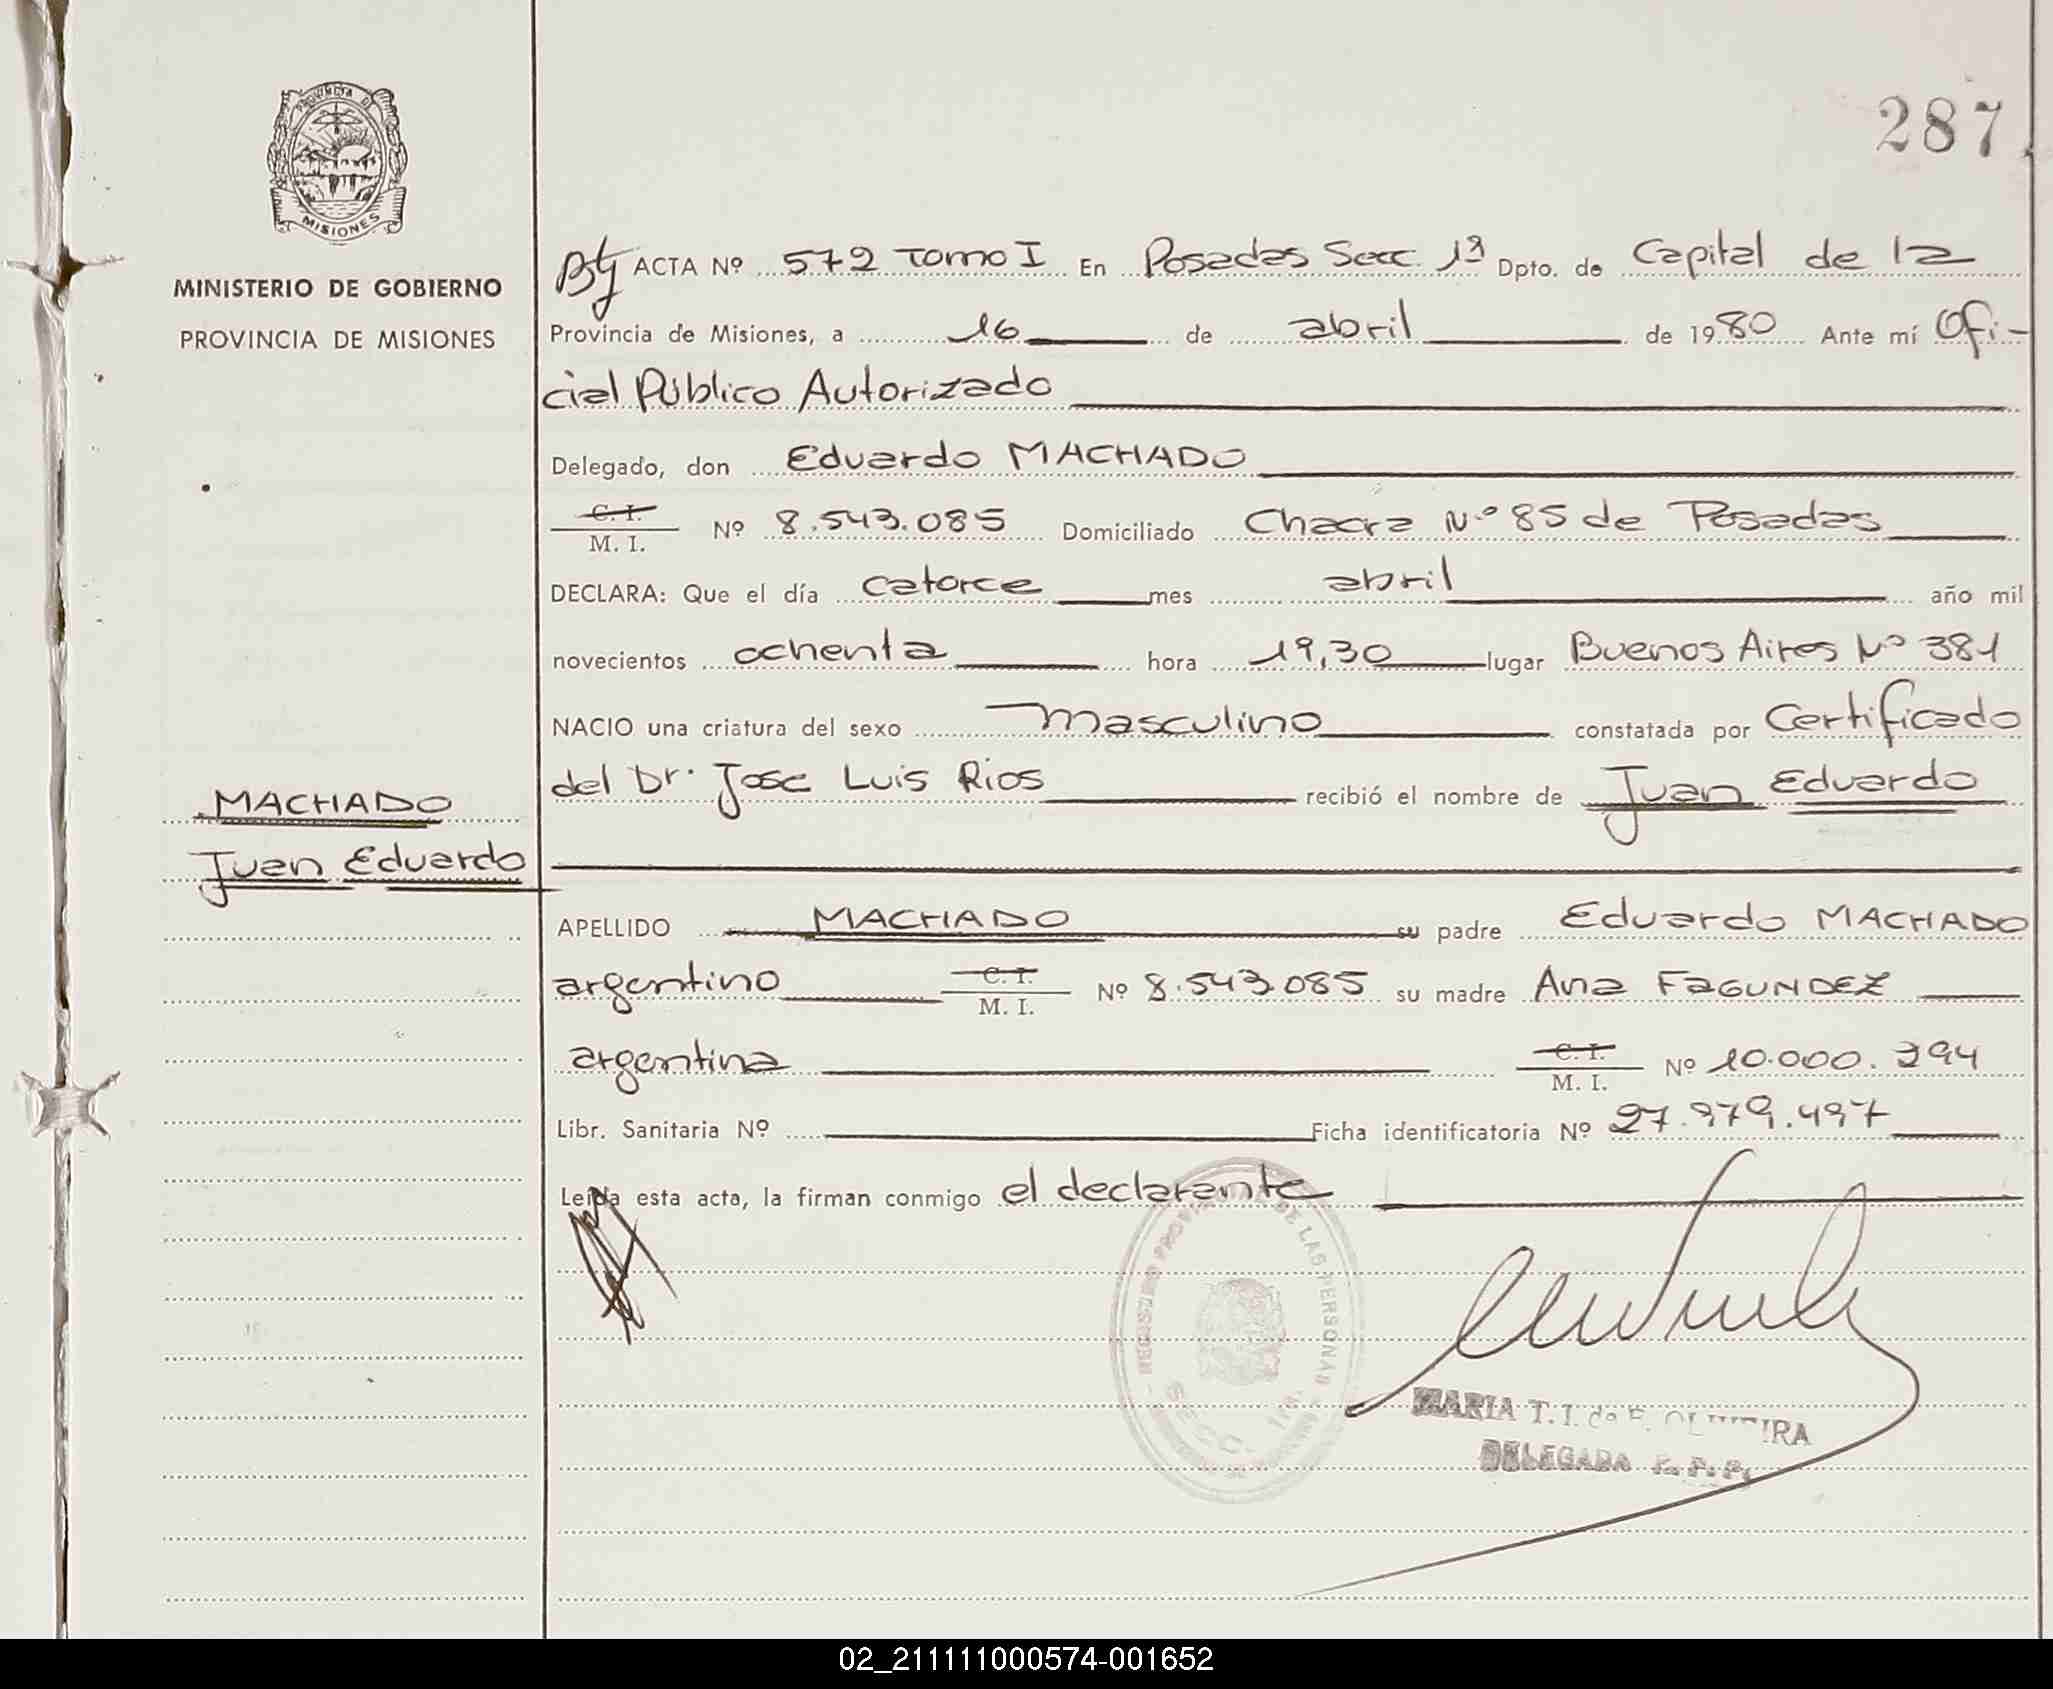 287
PROVINCIA DE
MISIONES
MINISTERIO DE GOBIERNO
PROVINCIA DE MISIONES
ACTA Nº 572 Tomo I En Posadas Secc. 1ª Dpto. de Capital de la
Provincia de Misiones, a 16 de abril de 1980 Ante mí Ofi-
cial Público Autorizado
Delegado, don Eduardo MACHADO
C. I.
M. I. Nº 8.543.085 Domiciliado Chacra Nº 85 de Posadas
DECLARA: Que el día catorce mes abril año mil
novecientos ochenta hora 19,30 lugar Buenos Aires Nº 381
NACIO una criatura del sexo masculino constatada por Certificado
del Dr. Jose Luis Rios recibió el nombre de Juan Eduardo
MACHADO
Juan Eduardo
APELLIDO MACHADO su padre Eduardo MACHADO
argentino C. I. M. I. Nº 8.543.085 su madre Ana FAGUNDEZ
argentina C. I. M. I. Nº 10.000.294
Libr. Sanitaria Nº Ficha identificatoria Nº 27.979.497
Leída esta acta, la firman conmigo el declarante
REGISTRO PROV DE LAS PERSONAS
SECC. 1ra.
MARIA T. I. de F. OLIVEIRA
DELEGADA R. P. P.
02_211111000574-001652